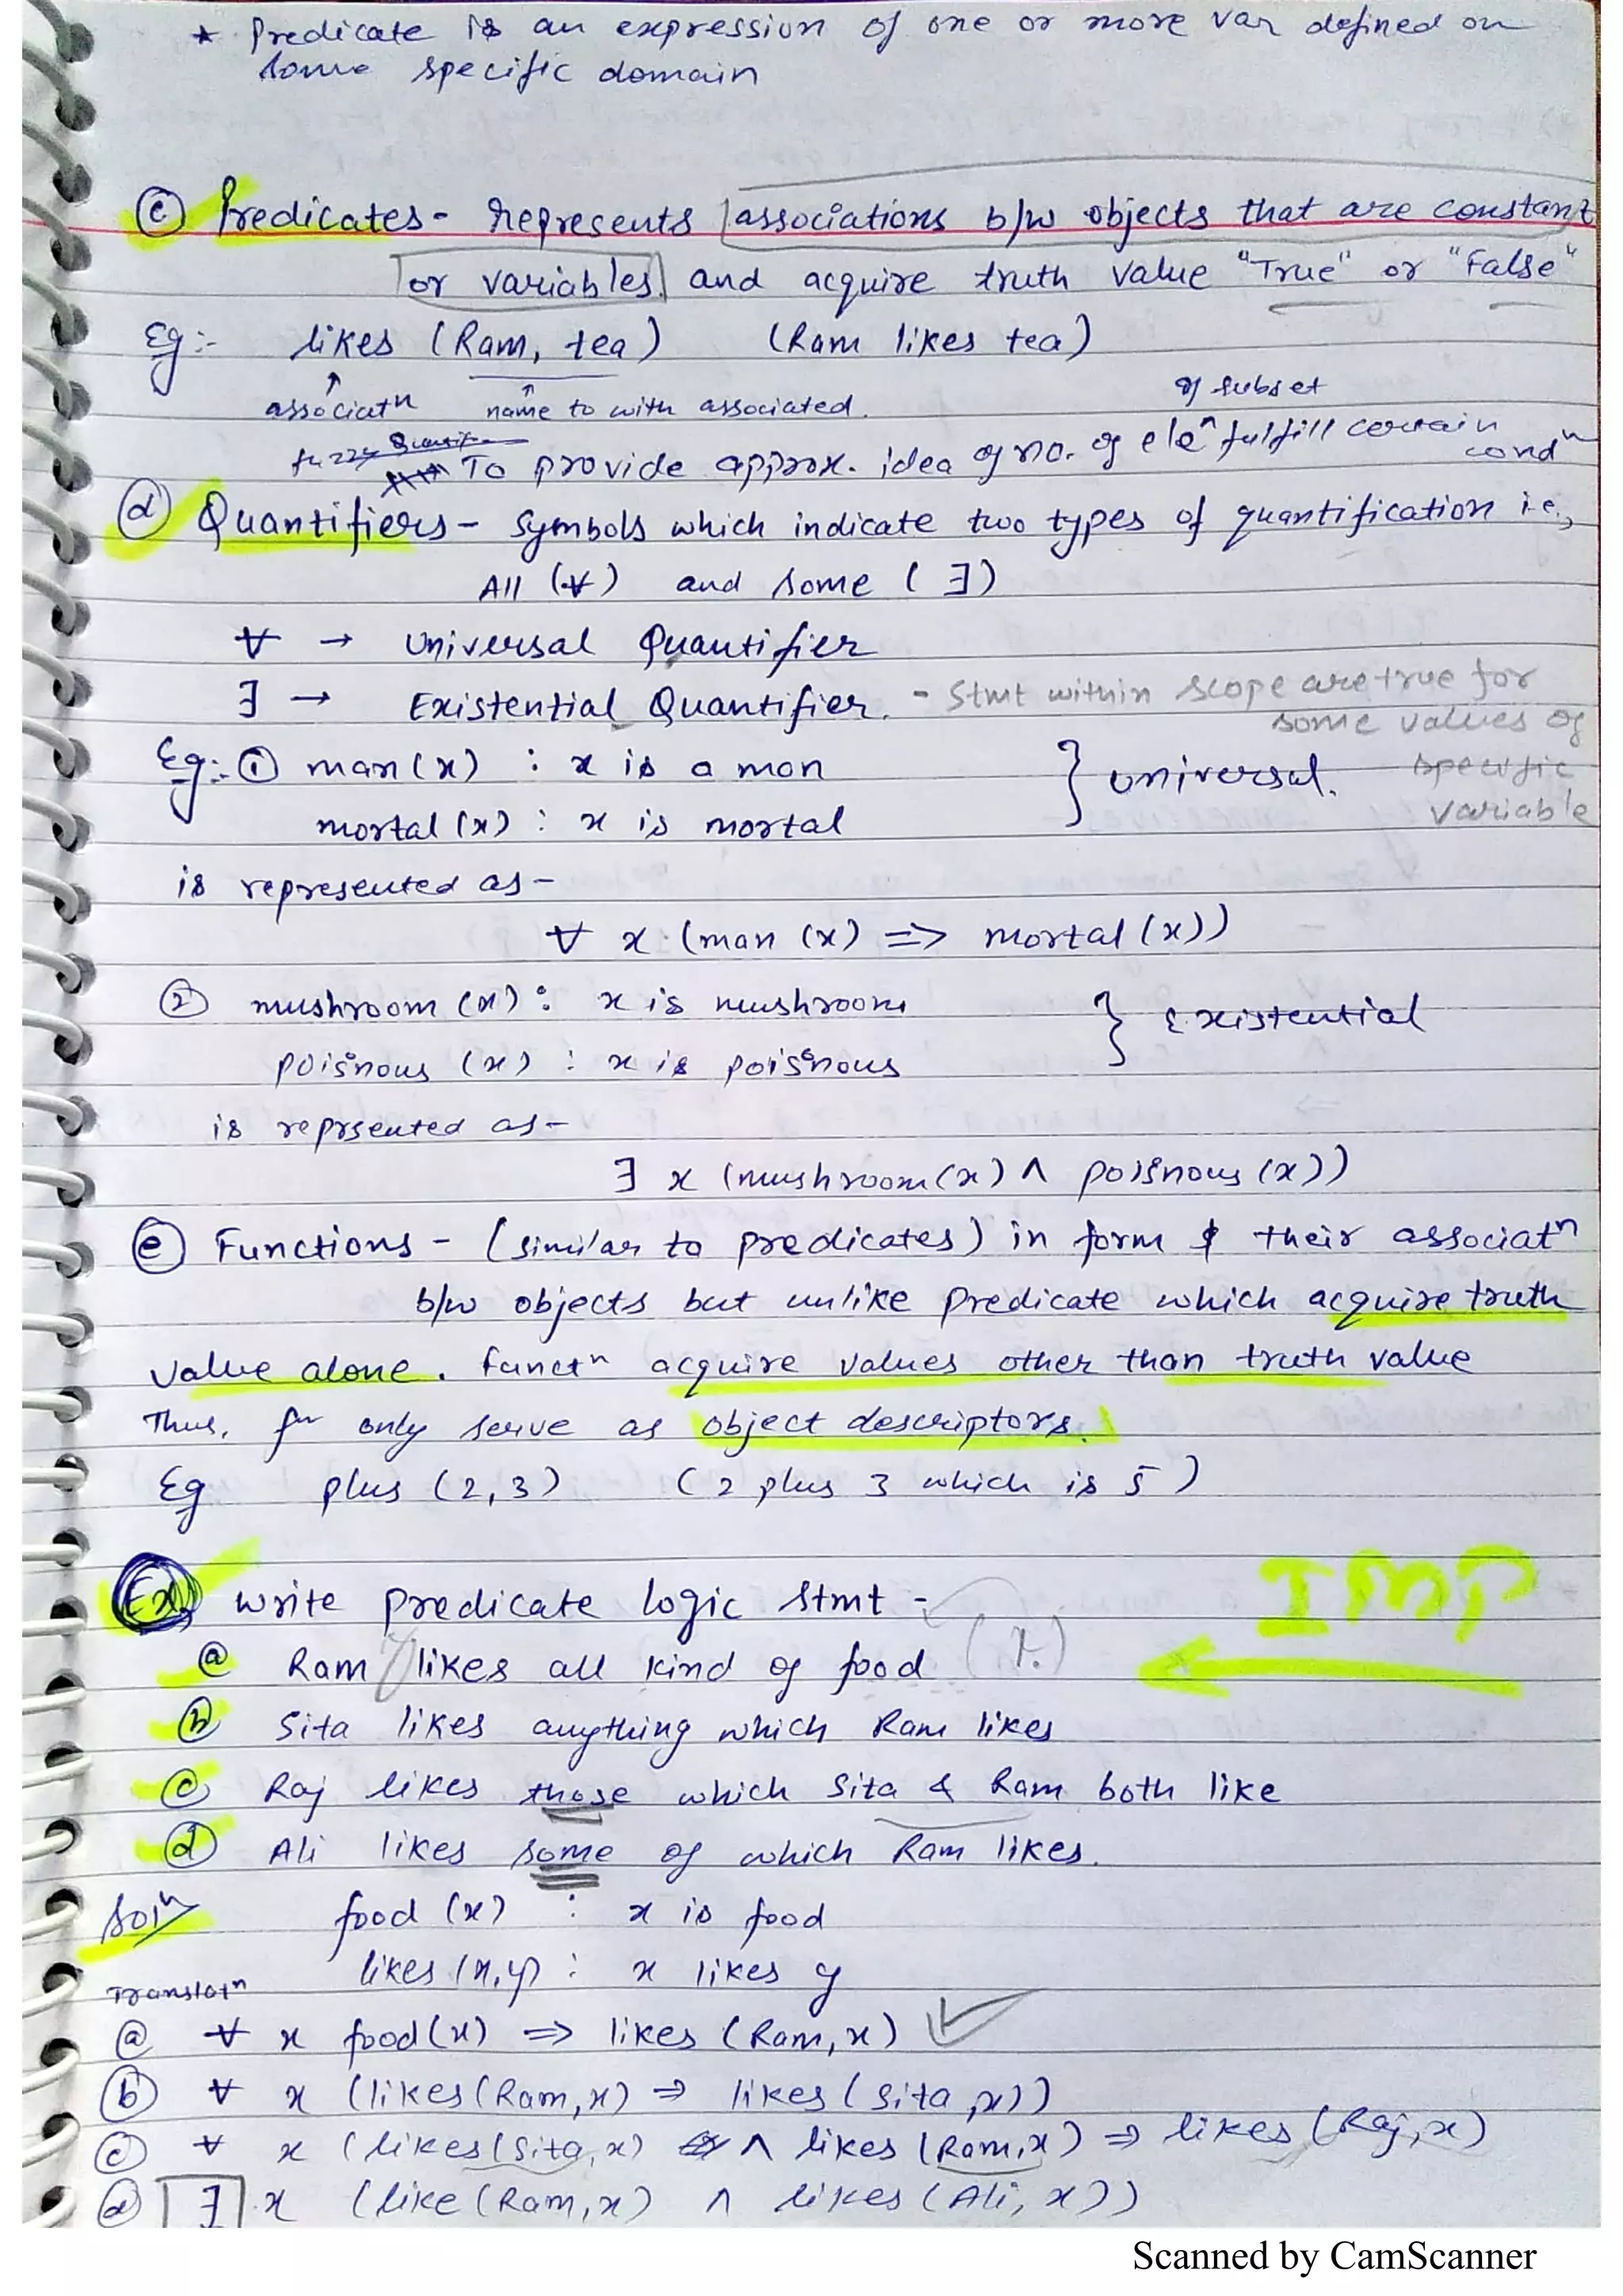 * Predicate is an expression of one or more var defined on
some specific domain
(c) Predicates - represents associations b/w objects that are constant
or variables. and acquire truth value "True" or "False"
Eg:- likes (Ram, tea) (Ram likes tea)
associatn name to with associated.
of subset
fuzzy To provide approx. idea of no. of elen fulfill certain
condn
(d) Quantifiers - Symbols which indicate two types of quantification i.e.,
All (∀) and some (∃)
∀ → Universal Quantifier
∃ → Existential Quantifier. - Stmt within scope are true for
some values of
specific
variable
Eg:- ① man(x) : x is a man } universal.
mortal (x) : x is mortal
is represented as -
∀ x (man (x) => mortal (x))
② mushroom (x) : x is mushroom } Existential
poisnous (x) : x is poisnous
is reprsented as -
∃ x (mushroom(x) ∧ poisnous (x))
(e) Functions - (similar to predicates) in form & their associatn
b/w objects but unlike predicate which acquire truth
value alone. functn acquire values other than truth value
Thus, fn only serve as object descriptors.
Eg plus (2,3) (2 plus 3 which is 5)
IMP
Ex) Write predicate logic stmt -
(a) Ram likes all kind of food (x.)
(b) Sita likes anything which Ram likes
(c) Raj likes those which Sita & Ram both like
(d) Ali likes some of which Ram likes.
Soln food (x) : x is food
likes (x,y) : x likes y
Translatn
(a) ∀ x food(x) => likes (Ram,x)
(b) ∀ x (likes(Ram,x) => likes (Sita,x))
(c) ∀ x (likes(Sita,x) ∧ likes (Ram,x) => likes (Raj,x)
(d) ∃ x (like (Ram,x) ∧ likes (Ali, x))
Scanned by CamScanner